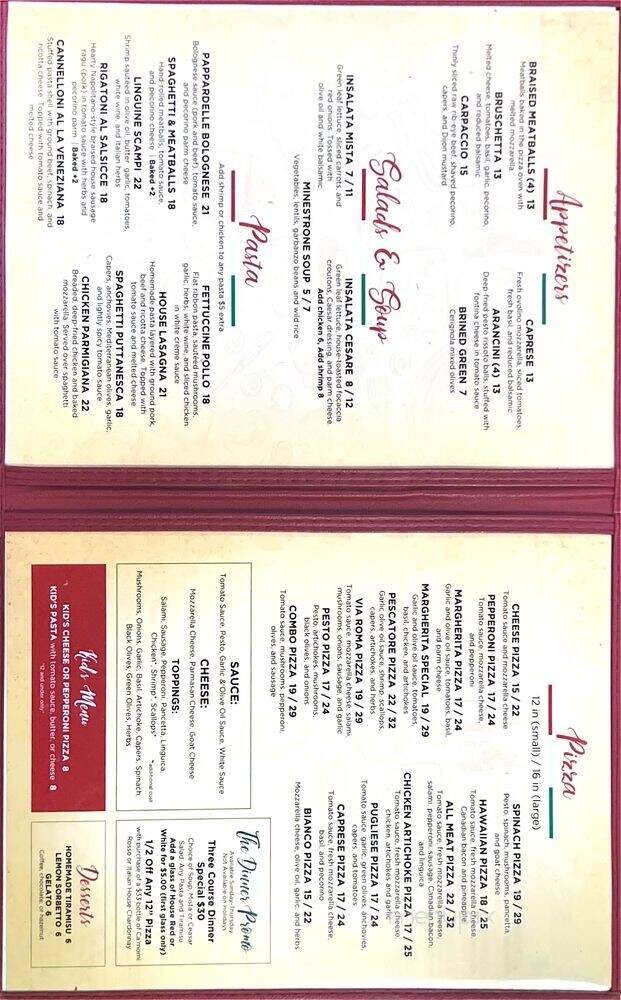 Appetizers
BRAISED MEATBALLS (4) 13
Meatballs baked in the pizza oven with
melted mozzarella
BRUSCHETTA 13
Melted cheese, tomatoes, basil, garlic, pecorino,
and reduced balsamic
CARPACCIO 15
Thinly sliced raw rib-eye beef, shaved pecorino,
capers, and Dijon mustard
CAPRESE 13
Fresh ovolino mozzarella, sliced tomatoes,
fresh basil, and reduced balsamic
ARANCINI (4) 13
Deep-fried pesto risotto balls, stuffed with
fontina cheese in tomato sauce
BRINED GREEN 7
Cerignola mixed olives
Salads & Soup
INSALATA MISTA 7 / 11
Green leaf lettuce, sliced carrots, and
red onions. Tossed with
olive oil and white balsamic
INSALATA CESARE 8 / 12
Green leaf lettuce, house-toasted focaccia
croutons, Caesar dressing, and parm cheese
Add chicken 6, Add shrimp 8
MINESTRONE SOUP 5 / 7
Vegetables, lentils, garbanzo beans and wild rice
Pasta
Add shrimp or chicken to any pasta $5 extra
PAPPARDELLE BOLOGNESE 21
Bolognese sauce (pork and beef), tomato sauce,
and pecorino parm cheese
SPAGHETTI & MEATBALLS 18
Hand-rolled meatballs, tomato sauce,
and pecorino cheese | Baked +2
LINGUINE SCAMPI 22
Shrimp sautéed in olive oil butter, garlic, tomatoes,
white wine, and Italian herbs
RIGATONI AL SALSICCE 18
Hearty Napolitano-style braised house sausage
ragu (pork) in tomato sauce with herbs and
pecorino parm | Baked +2
CANNELLONI AL LA VENEZIANA 18
Stuffed pasta shell with ground beef, spinach, and
ricotta cheese. Topped with tomato sauce and
melted cheese
FETTUCCINE POLLO 18
Flat ribbon pasta, sautéed mushrooms,
garlic, herbs, white wine, and sliced chicken
in white creme sauce
HOUSE LASAGNA 21
Homemade pasta layered with ground pork,
beef and ricotta cheese. Topped with
tomato sauce and melted cheese
SPAGHETTI PUTTANESCA 18
Capers, anchovies, Mediterranean olives, garlic,
and lightly spicy tomato sauce
CHICKEN PARMIGIANA 22
Breaded, deep-fried chicken and baked
mozzarella. Served over spaghetti
with tomato sauce
Pizza
12 in (small) / 16 in (large)
CHEESE PIZZA 15 / 22
Tomato sauce and mozzarella cheese
PEPPERONI PIZZA 17 / 24
Tomato sauce, mozzarella cheese,
and pepperoni
MARGHERITA PIZZA 17 / 24
Garlic and olive oil sauce, tomatoes, basil,
and parm cheese
MARGHERITA SPECIAL 19 / 29
Garlic and olive oil sauce, tomatoes,
basil, chicken, and artichokes
PESCATORE PIZZA 22 / 32
Garlic olive oil sauce, shrimp, scallops,
capers, artichokes, and herbs
VIA ROMA PIZZA 19 / 29
Tomato sauce, mozzarella cheese, salami,
mushrooms, onions, sausage, and garlic
PESTO PIZZA 17 / 24
Pesto, artichokes, mushrooms,
black olives, and onions
COMBO PIZZA 19 / 29
Tomato sauce, mushrooms, pepperoni,
olives, and sausage
SPINACH PIZZA 19 / 29
Pesto, spinach, mushrooms, pancetta,
and goat cheese
HAWAIIAN PIZZA 18 / 25
Tomato sauce, fresh mozzarella cheese,
Canadian bacon and pineapple
ALL MEAT PIZZA 22 / 32
Tomato sauce, fresh mozzarella cheese,
salami, pepperoni, sausage, Canadian bacon,
and linguica
CHICKEN ARTICHOKE PIZZA 17 / 25
Tomato sauce, fresh mozzarella cheese
chicken, artichokes and garlic
PUGLIESE PIZZA 17 / 24
Tomato sauce, garlic, green olives, anchovies,
capers, and tomatoes
CAPRESE PIZZA 17 / 24
Tomato sauce, fresh mozzarella cheese,
basil, and pecorino
BIANCO PIZZA 15 / 22
Mozzarella cheese, olive oil, garlic, and herbs
SAUCE:
Tomato Sauce, Pesto, Garlic & Olive Oil Sauce, White Sauce
CHEESE:
Mozzarella Cheese, Parmasan Cheese, Goat Cheese
TOPPINGS:
Salami, Sausage, Pepperoni, Pancetta, Linguica,
Chicken*, Shrimp*, Scallops*
*additional cost
Mushrooms, Onions, Garlic, Basil, Artichoke, Capers, Spinach,
Black Olives, Green Olives, Herbs
The Dinner Pronto
Available Sunday-Thursday
Not Available Holidays
Three Course Dinner
Special $30
Choice of Soup, Mista or Ceasar
Salad, Any Pasta and Tiramisu
Add a glass of House Red or
White for $5.00 (first glass only)
1/2 Off Any 12" Pizza
with purchase of a $33 bottle of Ca'momi
Rosso or Italian House Chardonnay
Kid's Menu
KID'S CHEESE OR PEPPERONI PIZZA 8
KID'S PASTA with tomato sauce, butter, or cheese 8
*12 and under only
Desserts
HOMEMADE TIRAMISU 6
LEMON SORBETTO 6
GELATO 6
Coffee, chocolate, or hazelnut